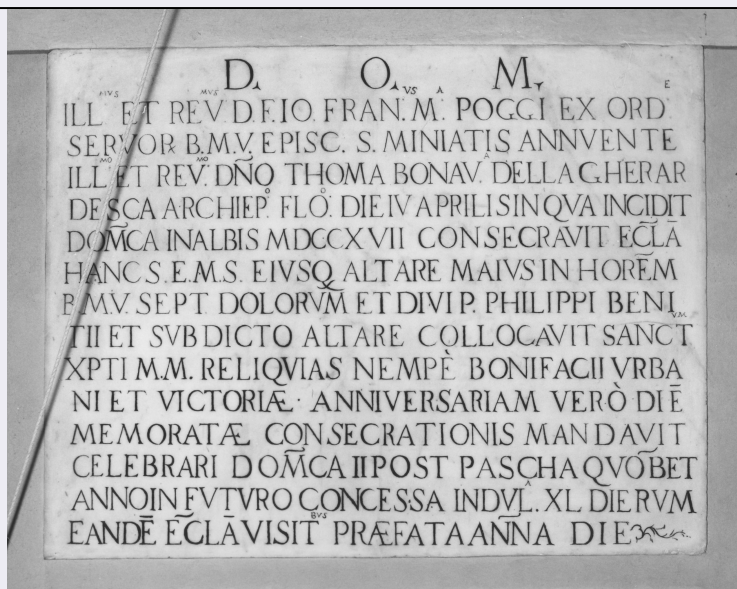 D. O. M.
ILL^MVS ET REV^MVS D. F. IO. FRAN.^VS M.^A POGGI EX ORD^E
SERVOR. B.M.V. EPISC. S. MINIATIS ANNVENTE
ILL^MO ET REV^MO DÑO THOMA BONAV.^A DELLA GHERAR
DESCA ARCHIEP.^O FLO.^O DIE IV APRILIS IN QVA INCIDIT
DOM̃CA IN ALBIS MDCCXVII CONSECRAVIT EC̃LĀ
HANC S.E.M.S. EIVSQ ALTARE MAIVS IN HORẼM
B.M.V. SEPT DOLORVM̃ ET DIVI P. PHILIPPI BENI
TII ET SVB DICTO ALTARE COLLOCAVIT SANCT^VM
XPTI M.M. RELIQVIAS NEMPÈ BONIFACII VRBA
NI ET VICTORIÆ· ANNIVERSARIAM VERÒ DIĒ
MEMORATÆ CONSECRATIONIS MANDAVIT
CELEBRARI DOM̃CA II POST PASCHA QVÕBET
ANNO IN FVTVRO CONCESSA INDVL.^A XL DIERVM
EANDĒ EC̃LĀ VISIT^BVS PRÆFATA ANÑA DIE